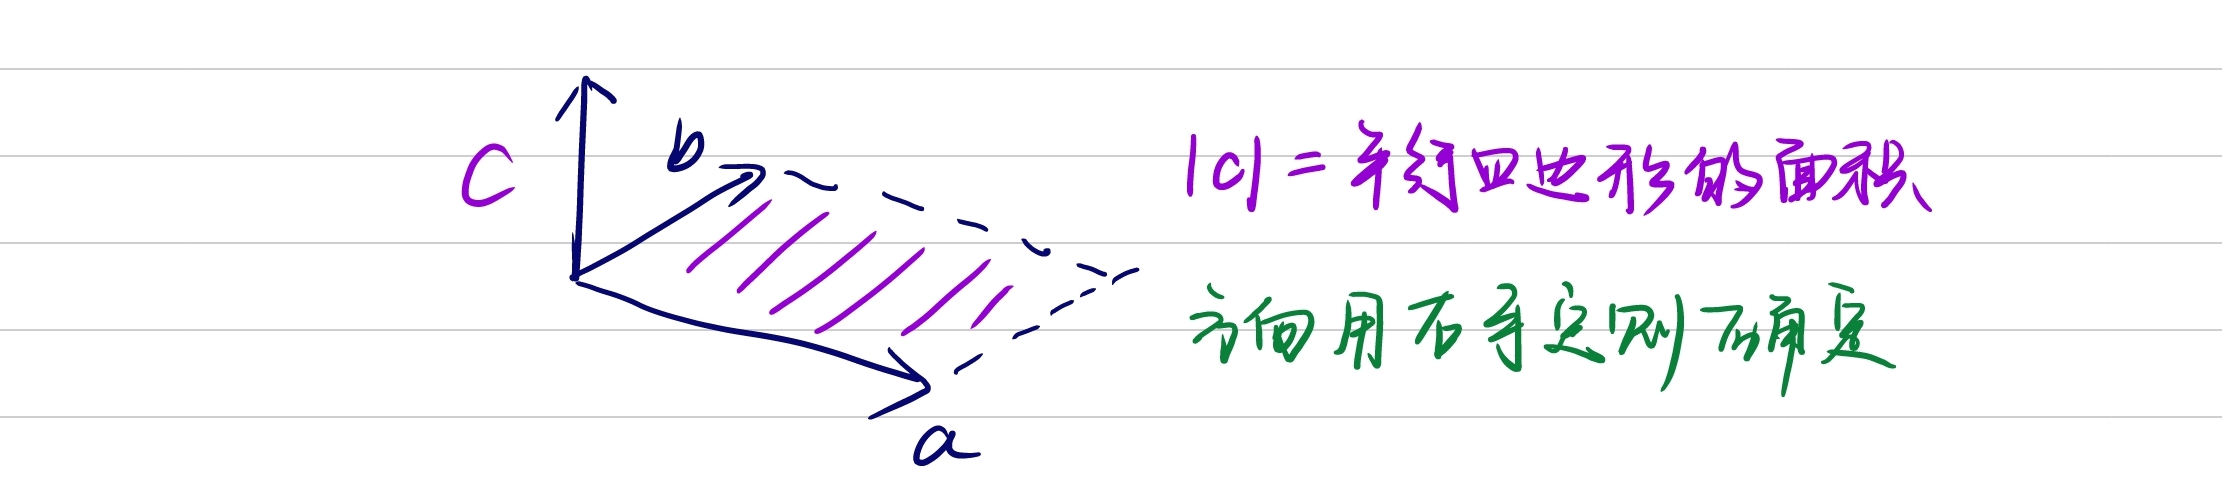 C
b
a
|c| = 平行四边形的面积
方向用右手定则确定